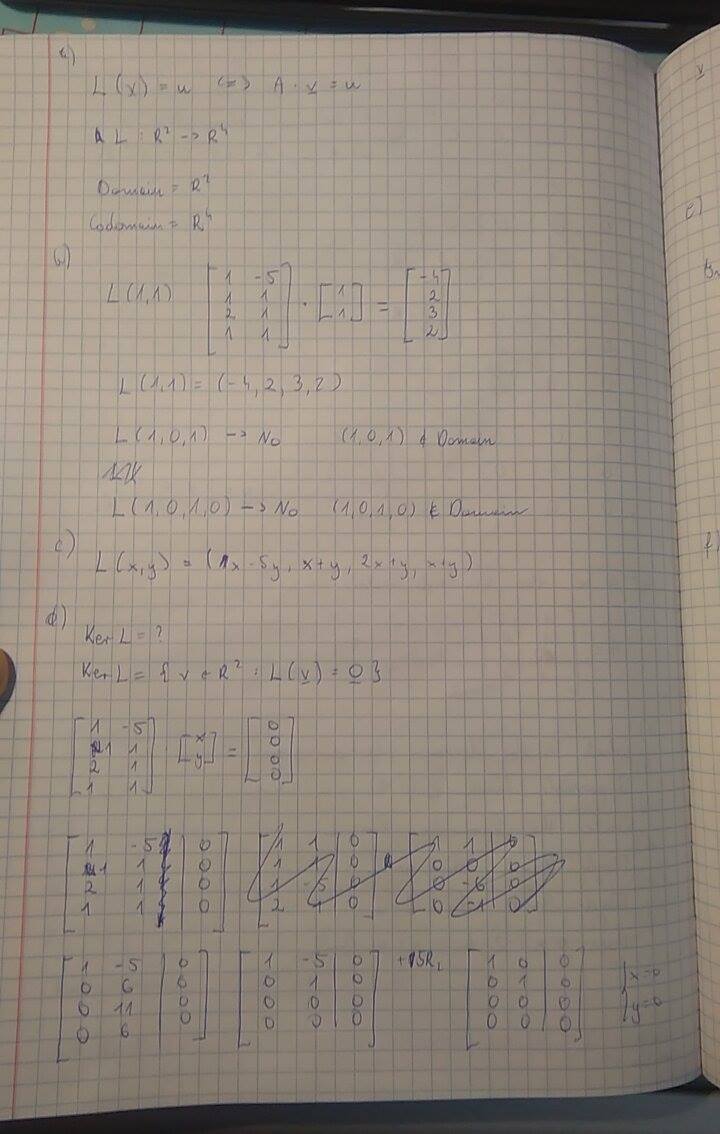 a)
L(x) = u <=> A · x = u
L : R² -> R⁴
Domain = R²
Codomain = R⁴
b)
L(1,1) [1 -5; 1 1; 2 1; 1 1] · [1; 1] = [-4; 2; 3; 2]
L(1,1) = (-4, 2, 3, 2)
L(1,0,1) -> No (1,0,1) ∉ Domain
L(1,0,1,0) -> No (1,0,1,0) ∉ Domain
c)
L(x,y) = (1x-5y, x+y, 2x+y, x+y)
d)
Ker L = ?
Ker L = { v ∈ R² : L(v) = 0 }
[1 -5; 1 1; 2 1; 1 1] · [x; y] = [0; 0; 0; 0]
[1 -5 | 0; 1 1 | 0; 2 1 | 0; 1 1 | 0] [1 1 | 0; 1 1 | 0; 1 -5 | 0; 2 1 | 0] [1 1 | 0; 0 0 | 0; 0 -6 | 0; 0 -1 | 0]
[1 -5 | 0; 0 6 | 0; 0 11 | 0; 0 6 | 0] [1 -5 | 0; 0 1 | 0; 0 0 | 0; 0 0 | 0] +5R₂ [1 0 | 0; 0 1 | 0; 0 0 | 0; 0 0 | 0] { x=0
y=0
e)
f)